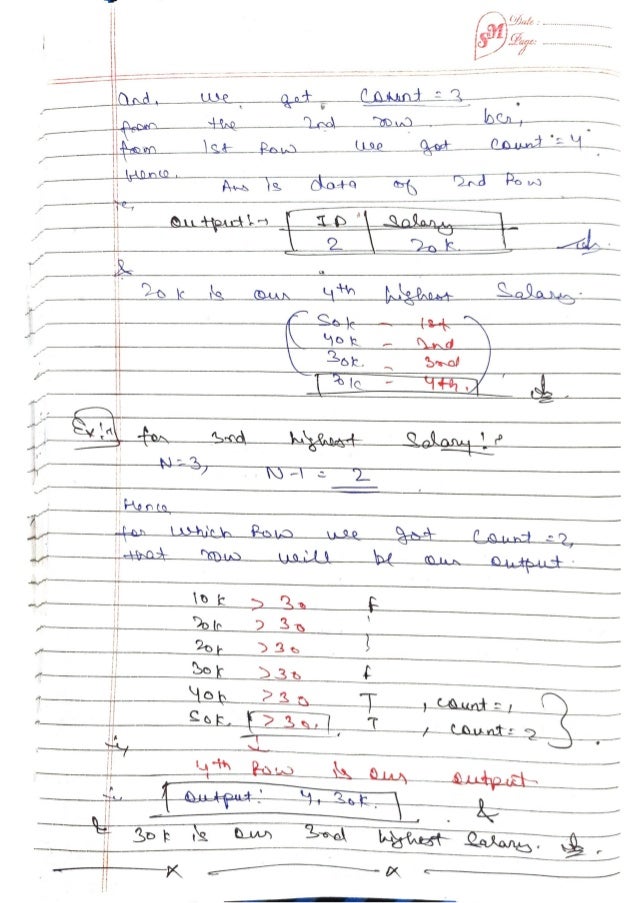 SM Date :
Page:
And, we get count = 3
from the 2nd row bcz,
from 1st Row we got count = 4
Hence, Ans is data of 2nd Row
i.e,
Output:→ ID | Salary
2 | 20k
&
20k is our 4th highest Salary.
50k - 1st
40k - 2nd
30k. - 3rd
20k - 4th.
Ex:→ for 3rd highest Salary:→
N=3, N-1 = 2
Hence
for which Row we got count = 2,
that row will be our output.
10k > 30 f
20k > 30
20k > 30
30k > 30 f
40k > 30 T , count = 1
50k. > 30. T , count = 2
4th Row is our output
∴ Output: 4, 30k. &
& 30k is our 3rd highest Salary.